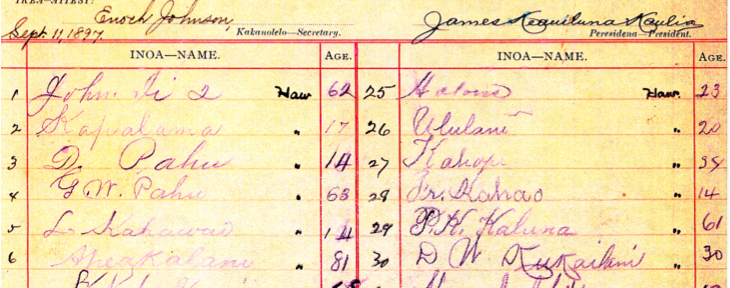 Sept. 11, 1897. Enoch Johnson, Kakauolelo—Secretary. James Keauiluna Kaulia Peresidena—President.
INOA—NAME. AGE. INOA—NAME. AGE.
1 John Ii 2 Haw 62 25 Haw. 23
2 Kapalama " 17 26 Ululani " 20
3 D. Pahu " 14 27 "
4 G. W. Pahu " 63 28 Kahao " 14
5 L Kahawai " 14 29 P. K. Kaluna " 61
6 Apeakalani " 81 30 D W Kukailani " 30